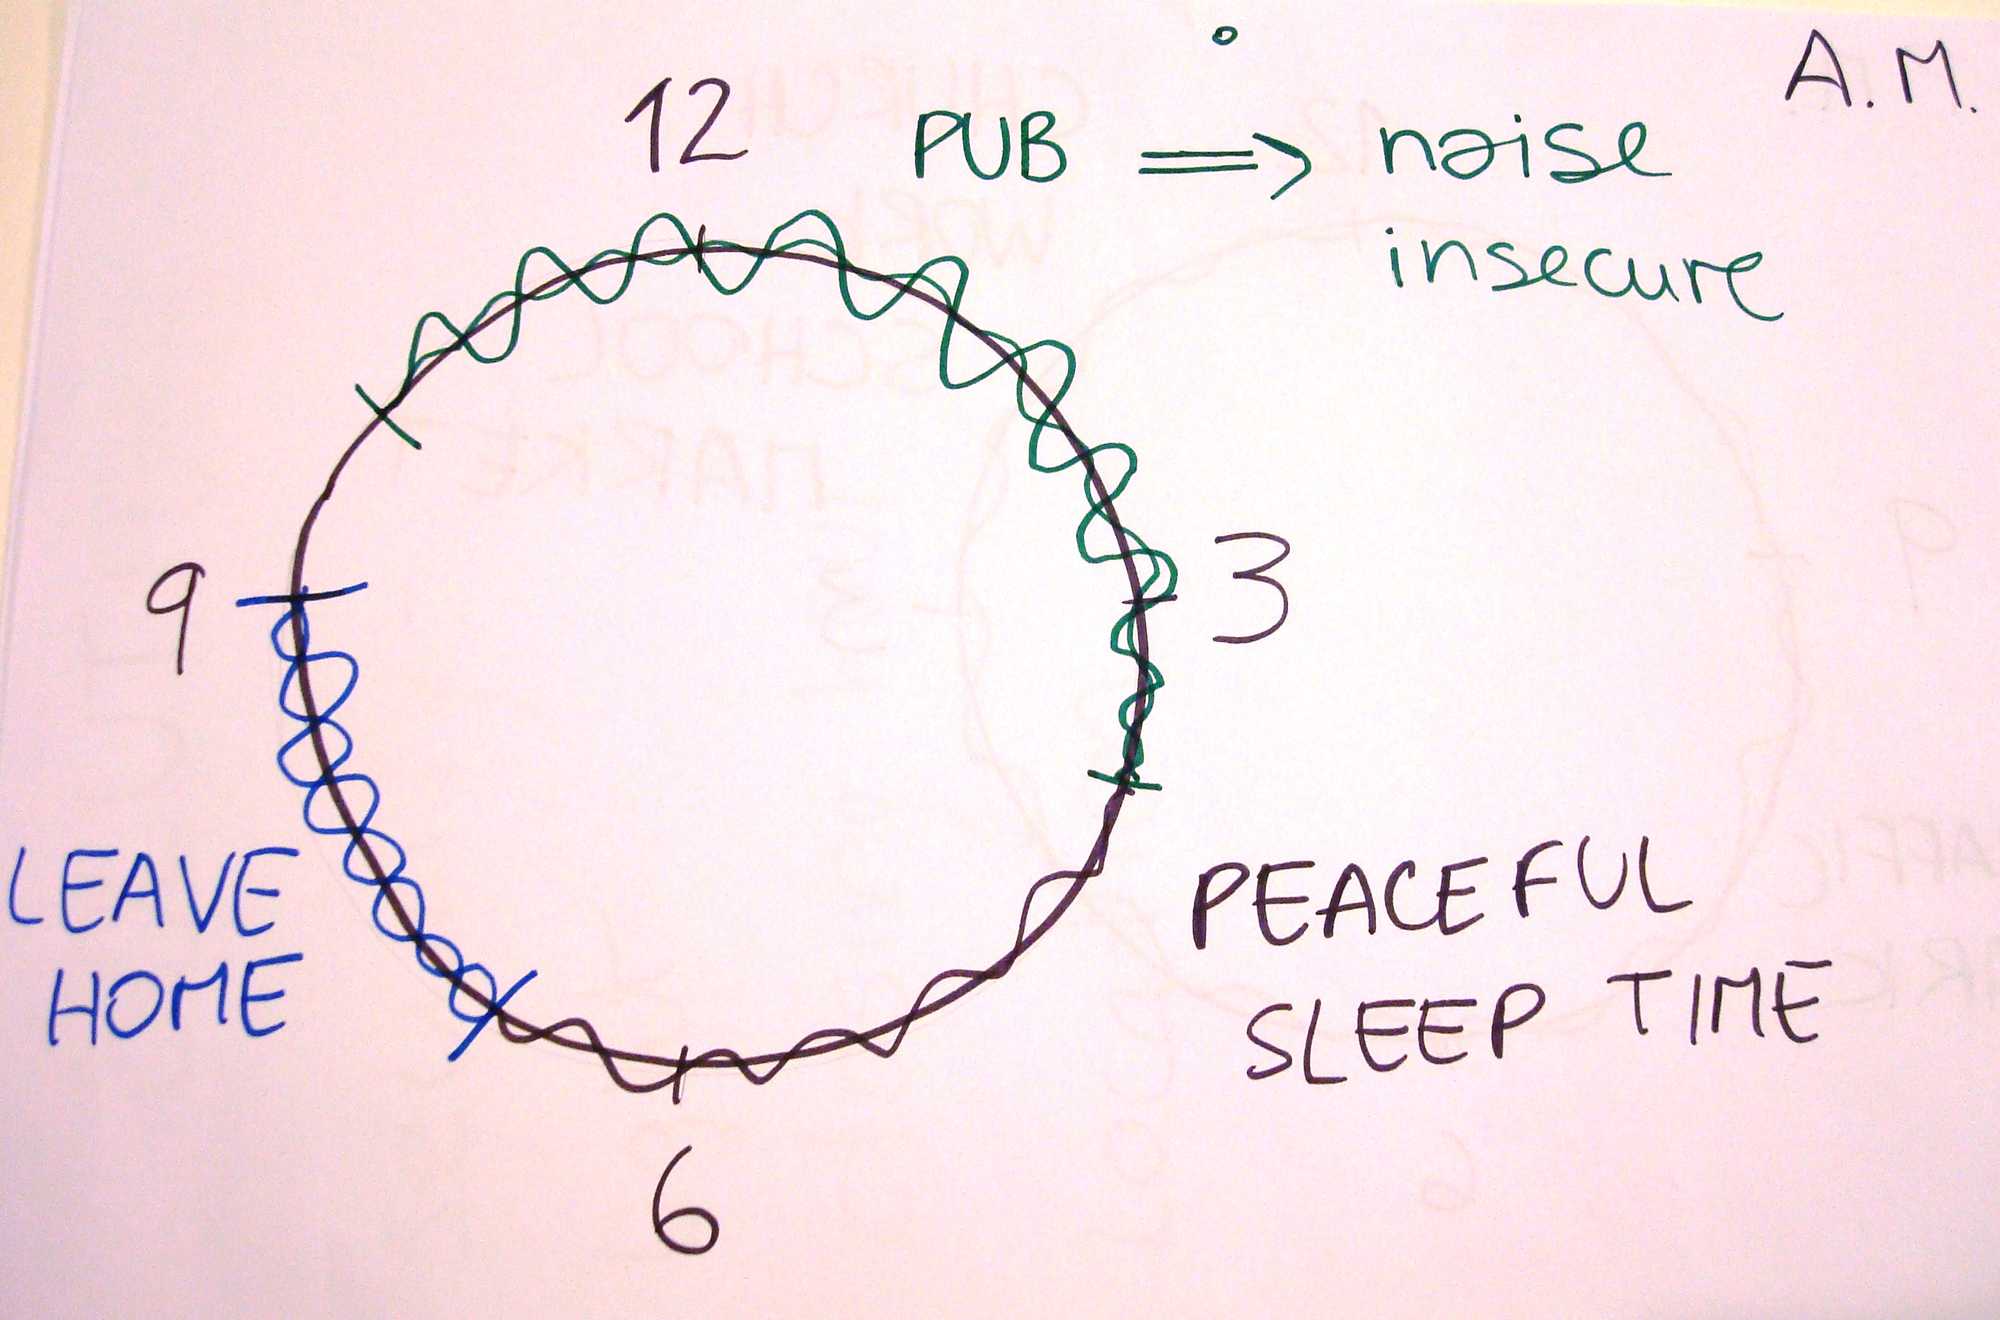 A.M.
12
PUB => noise
insecure
9
3
LEAVE
HOME
PEACEFUL
SLEEP TIME
6